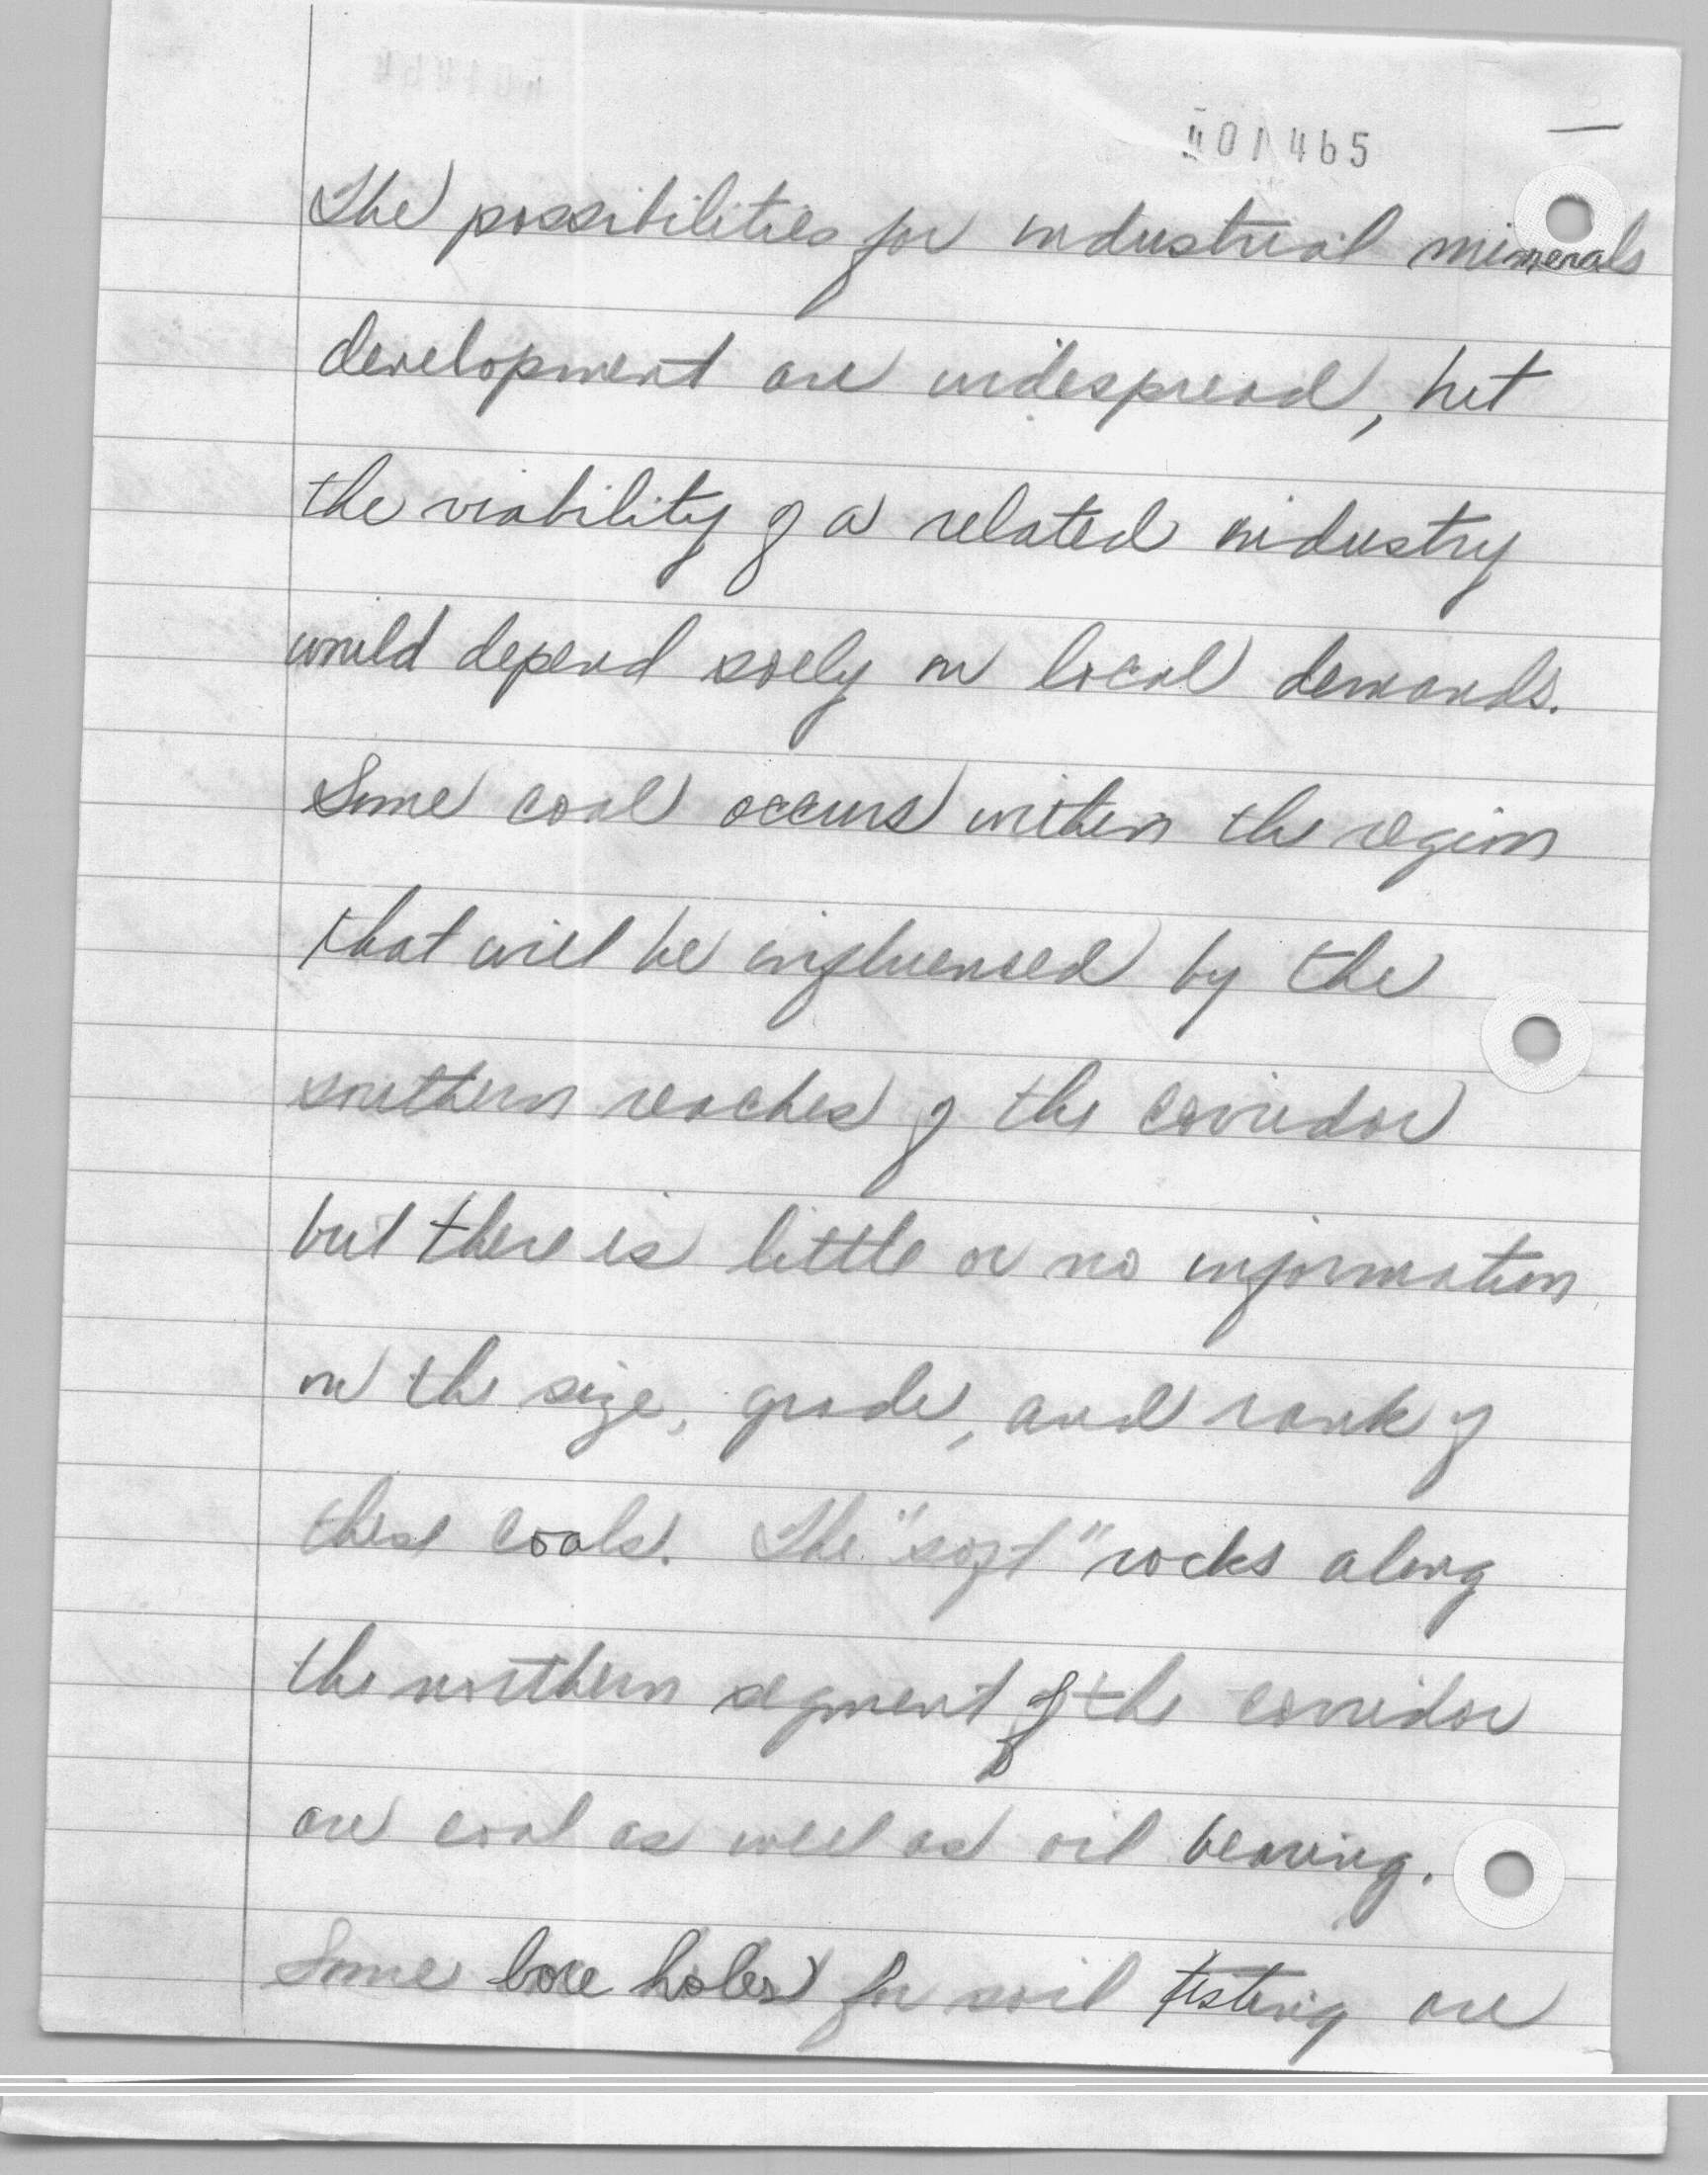 401465
The possibilities for industrial minerals
development are widespread, but
the viability of a related industry
would depend soely on local demands.
Some coal occurs within the region
that will be influenced by the
southern reaches of the corridor
but there is little or no information
on the size, grade, and rank of
these coals. The "soft" rocks along
the northern segment of the corridor
are coal as well as oil bearing.
Some bore holes for soil testing are